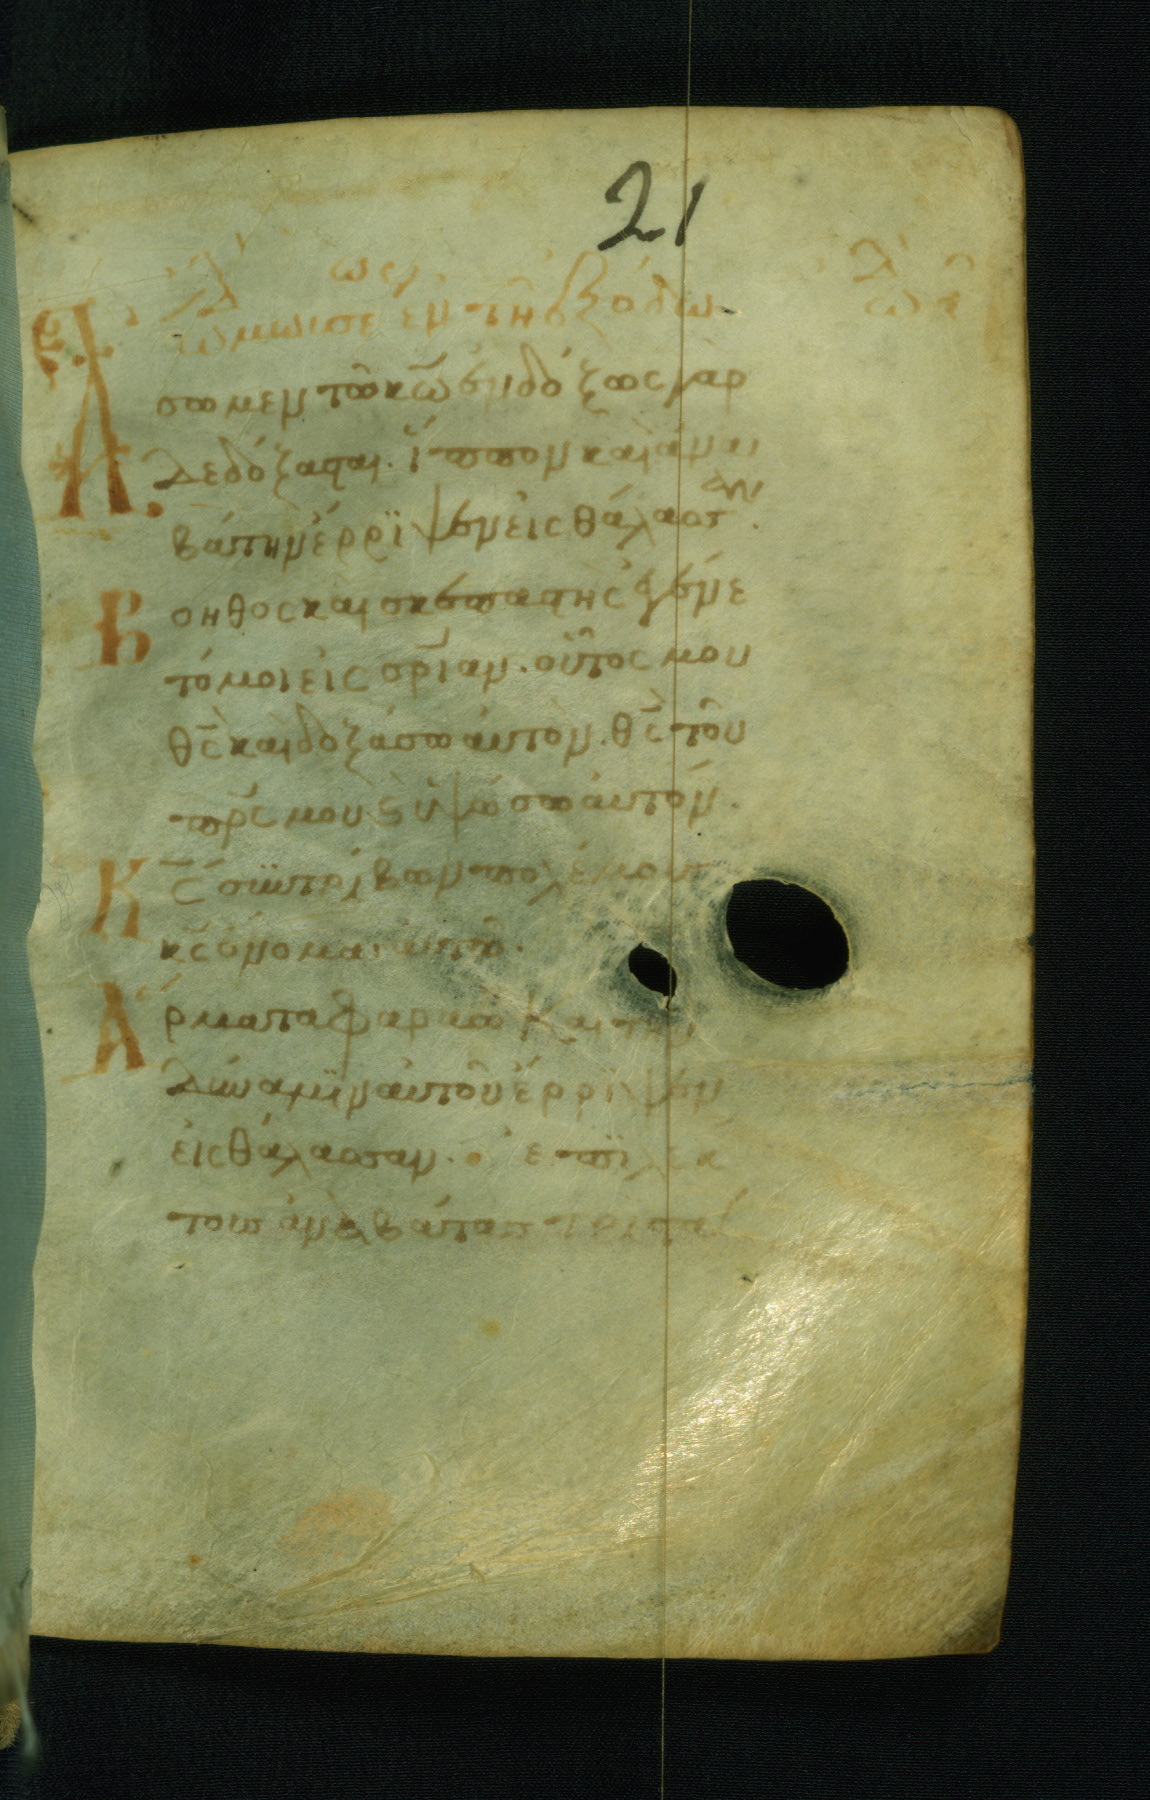 21
ᾠδ
ωμωισε ἐν τῆ ἐξόδω
Ἄσωμεν τῶ κω̅ ἐνδόξως γαρ
δεδόξασται· ἵππον καὶ ἀνα
βάτην ἔρριψεν εἰς θάλασσαν·
Βοηθος καὶ σκεπαστὴς ἐγένε
τό μοι εἰς σρ̅ιαν· οὗτος μου
θς̅ καὶ δοξάσω αυτον· θς̅ τοῦ
πρ̅ς μου ϗ ὑψώσω ἀυτόν·
Κς̅ συντρίβων πολέμους
κς̅ ὄνομα αυτῶ·
Ἅρματα φαραὼ καὶ την
δύναμϊν αυτοῦ ἔρριψεν
εἰς θάλασσαν· ἐπϊλεκ
τους ἀναβάτας τριστά